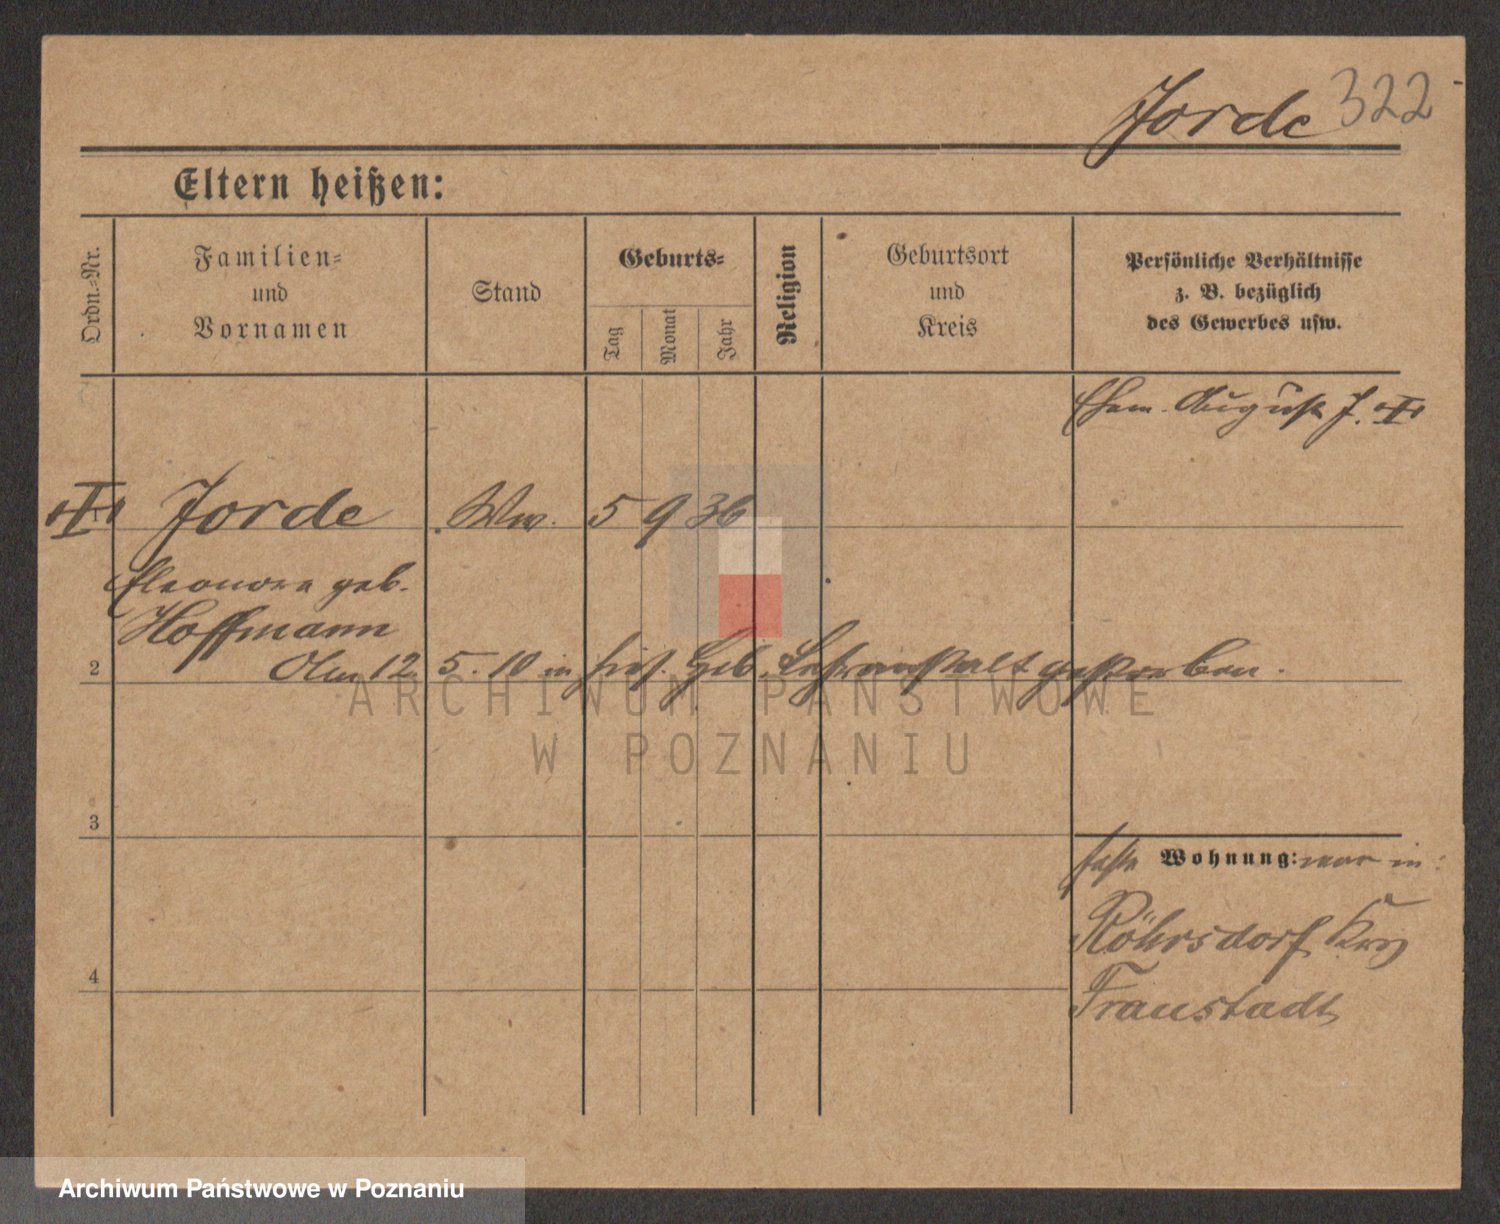 Jorde 322
Eltern heißen:
Ordn.-Nr.
Familien=
und
Vornamen
Stand
Geburts=
Tag
Monat
Jahr
Religion
Geburtsort
und
Kreis
Persönliche Verhältnisse
z. B. bezüglich
des Gewerbes usw.
Ehem. August J.
1 Jorde Ww. 5 9 36
Eleonore geb.
Hoffmann
2 Am 12. 5. 10 in hies. Heb. Lehranstalt gestorben.
3
feste Wohnung: war in:
Röhrsdorf Krs
4
Fraustadt
ARCHIWUM PAŃSTWOWE
W POZNANIU
Archiwum Państwowe w Poznaniu